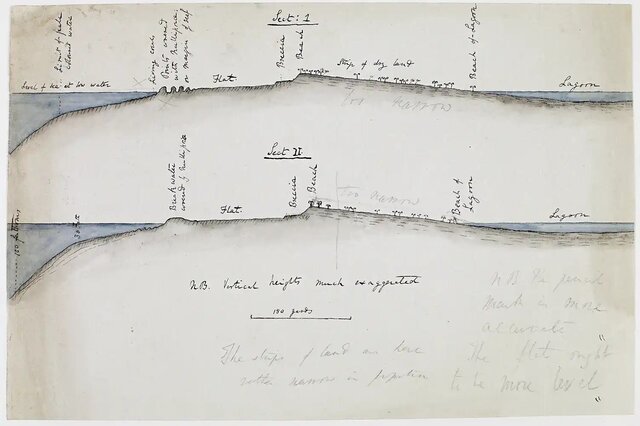 Sect: I
Limit of
Living coral
Points covered
with Nulliporæ,
on margin of reef
Flat
Breccia
Beach
Strip of dry land
Beach of Lagoon
Level of sea at low water
Lagoon
too narrow
Sect II.
Breakwater
covered by Nulliporæ
Flat.
Breccia
Beach
too narrow
Beach of
Lagoon
Lagoon
NB. Vertical heights much exaggerated
180 yards
NB the pencil
mark is more
accurate
The strips of land are here
rather narrow in proportion
"The flat ought
to be more level"